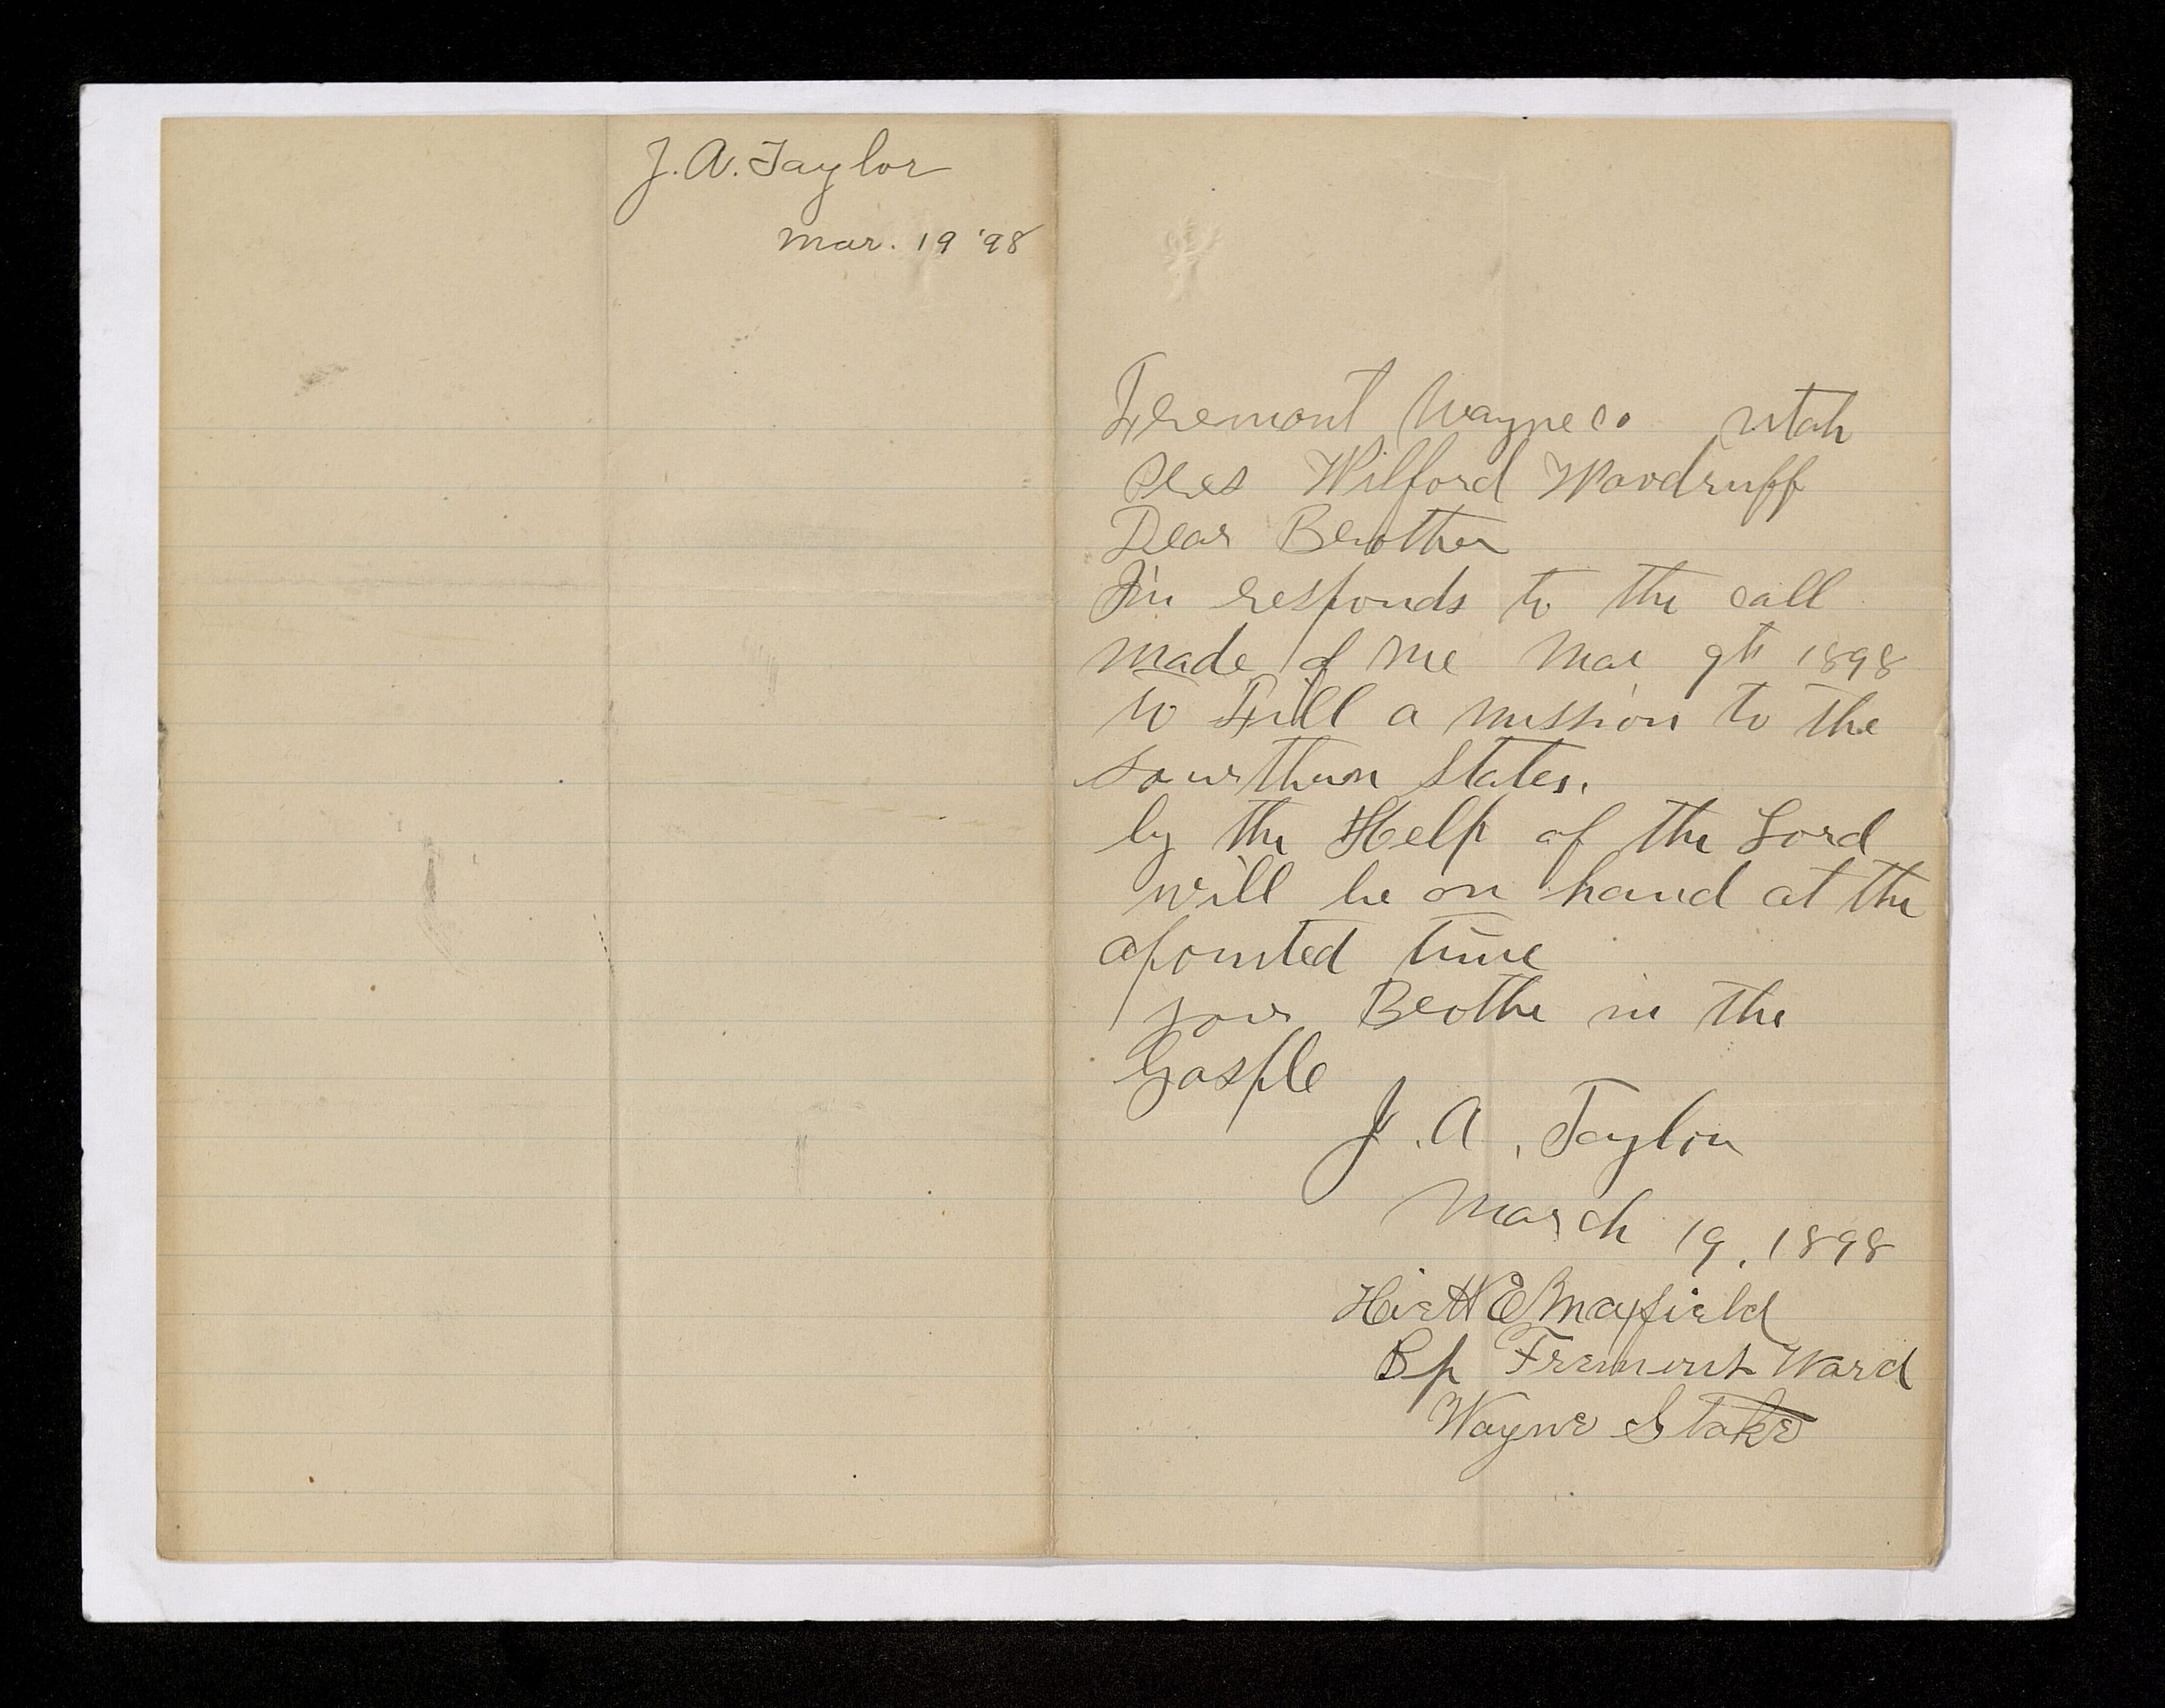 J. A. Taylor
Mar. 19 '98
Fremont Wayne Co Utah
Pres Wilford Woodruff
Dear Brother
In responds to the call
made of me Mar 9th 1898
to Fill a mission to the
sowthern States.
by the Help of the Lord
will be on hand at the
apointed time
your Brothe in the
Gosple
J. A. Taylor
March 19, 1898
Hiett E Maxfield
Bp Fremont Ward
Wayne Stake